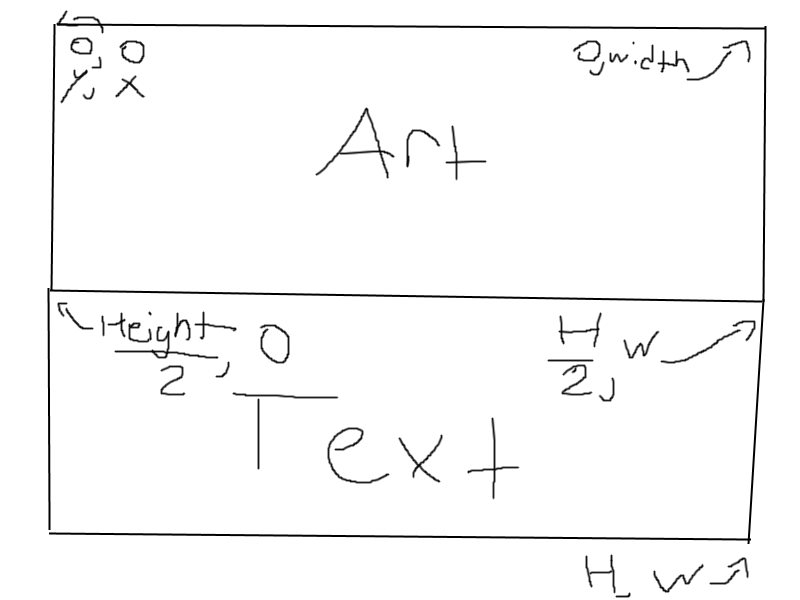 0, 0
0,width
y, x
Art
Height/2, 0
H/2, W
Text
H, W